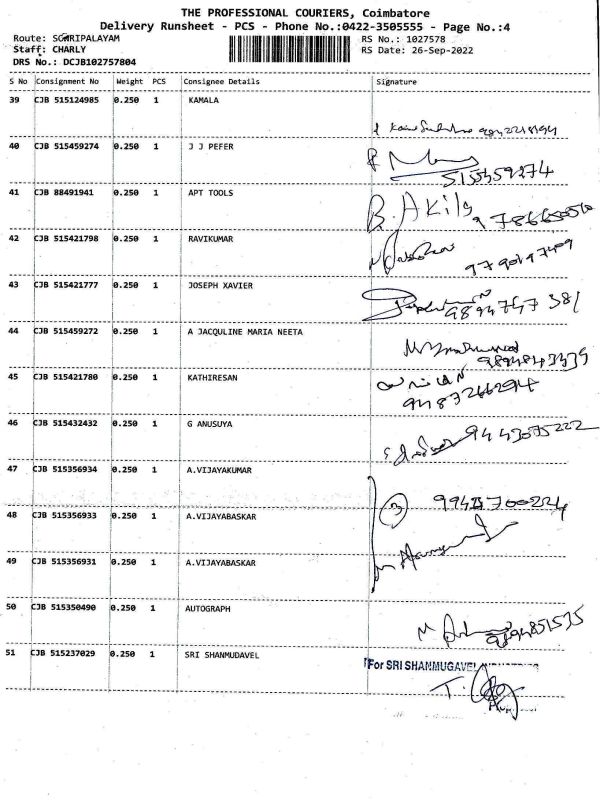 THE PROFESSIONAL COURIERS, Coimbatore
Delivery Runsheet - PCS - Phone No.:0422-3505555 - Page No.:4
Route: SOWRIPALAYAM RS No.: 1027578
Staff: CHARLY RS Date: 26-Sep-2022
DRS No.: DCJB102757804
S No Consignment No Weight PCS Consignee Details Signature
39 CJB 515124985 0.250 1 KAMALA
40 CJB 515459274 0.250 1 J J PEFER
515459274
41 CJB 88491941 0.250 1 APT TOOLS B. Akila
42 CJB 515421798 0.250 1 RAVIKUMAR
9790197409
43 CJB 515421777 0.250 1 JOSEPH XAVIER
9894747381
44 CJB 515459272 0.250 1 A JACQULINE MARIA NEETA
9894843439
45 CJB 515421780 0.250 1 KATHIRESAN
9487266294
46 CJB 515432432 0.250 1 G ANUSUYA 9443075222
47 CJB 515356934 0.250 1 A.VIJAYAKUMAR
48 CJB 515356933 0.250 1 A.VIJAYABASKAR 3
49 CJB 515356931 0.250 1 A.VIJAYABASKAR
50 CJB 515350490 0.250 1 AUTOGRAPH
9894851535
51 CJB 515237029 0.250 1 SRI SHANMUDAVEL For SRI SHANMUGAVEL